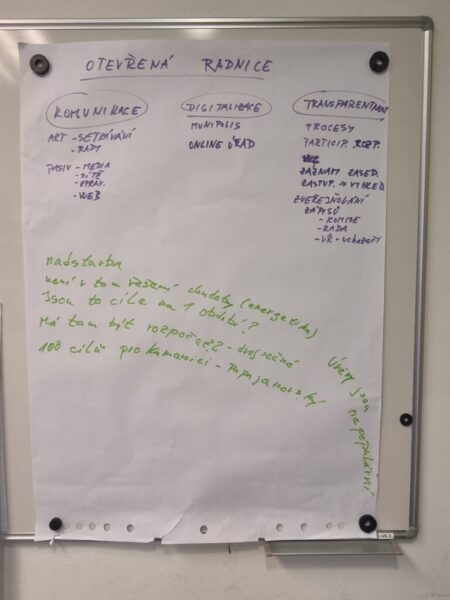 OTEVŘENÁ RADNICE
KOMUNIKACE
AKT - SETKÁVÁNÍ
- RADY
PASIV - MEDIA
- SÍTĚ
- ZPRAV.
- WEB
DIGITALIZACE
MUNIPOLIS
ONLINE ÚŘAD
TRANSPARENTNOST
PROCESY
PARTICIP. ROZP.
ZÁZNAM ZASED.
ZASTUP. → VIMPEO
ZVEŘEJŇOVÁNÍ
ZÁPISŮ
- KOMISE
- RADA
- VŘ - UCHAZEČI
nadstavba
není v tom řešení chudoby (energetika)
Jsou to cíle na 1 období?
Má tam být rozpočet? - dvojsečné
100 cílů pro Kamenici -
Úvěry jsou nepopulární